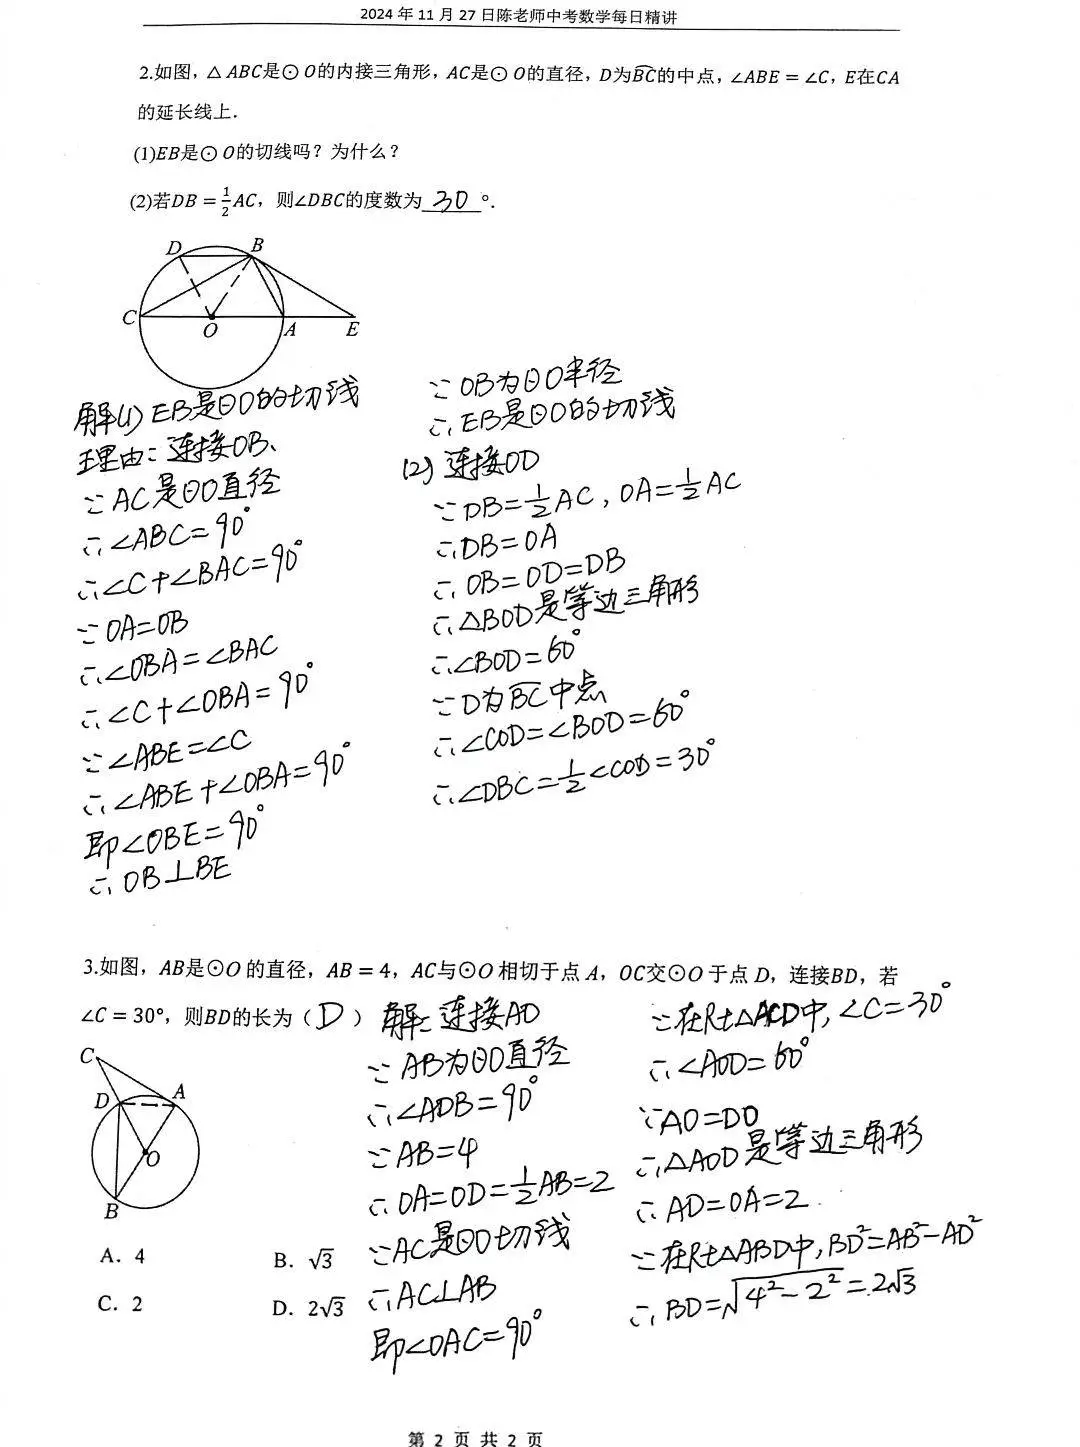 2024 年 11 月 27 日陈老师中考数学每日精讲
2.如图，△ ABC是⊙ O的内接三角形，AC是⊙ O的直径，D为B͡C的中点，∠ABE = ∠C，E在CA
的延长线上.
(1)EB是⊙ O的切线吗？为什么？
(2)若DB = 1/2 AC，则∠DBC的度数为 30 °.
D B
C O A E
解(1) EB是⊙O的切线
理由：连接OB、
∵ AC是⊙O直径
∴ ∠ABC=90°
∴ ∠C+∠BAC=90°
∵ OA=OB
∴ ∠OBA=∠BAC
∴ ∠C+∠OBA=90°
∵ ∠ABE=∠C
∴ ∠ABE+∠OBA=90°
即∠OBE=90°
∴ OB⊥BE
∵ OB为⊙O半径
∴ EB是⊙O的切线
(2) 连接OD
∵ DB=1/2 AC，OA=1/2 AC
∴ DB=OA
∴ OB=OD=DB
∴ △BOD是等边三角形
∴ ∠BOD=60°
∵ D为B͡C中点
∴ ∠COD=∠BOD=60°
∴ ∠DBC=1/2∠COD=30°
3.如图，AB是⊙O 的直径，AB = 4，AC与⊙O 相切于点 A，OC交⊙O 于点 D，连接BD，若
∠C = 30°，则BD的长为（ D ）
C
D A
O
B
A．4 B．√3
C．2 D．2√3
解：连接AD
∵ AB为⊙O直径
∴ ∠ADB=90°
∵ AB=4
∴ OA=OD=1/2 AB=2
∵ AC是⊙O切线
∴ AC⊥AB
即∠OAC=90°
∵ 在Rt△ACD中，∠C=30°
∴ ∠AOD=60°
∵ AO=DO
∴ △AOD是等边三角形
∴ AD=OA=2.
∵ 在Rt△ABD中，BD²=AB²-AD²
∴ BD=√(4²-2²)=2√3
第 2 页 共 2 页